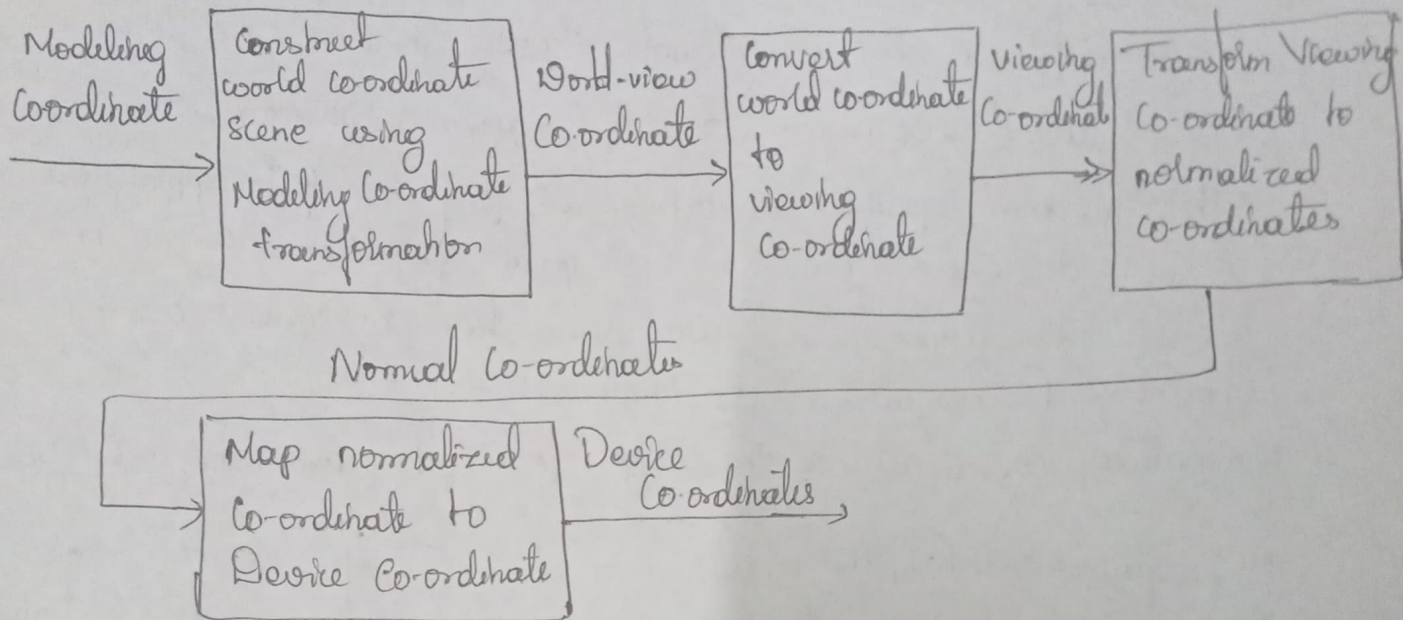 Modeling
Coordinate
Construct
world co-ordinate
scene using
Modeling Co-ordinate
transformation
World-view
Co-ordinate
Convert
world co-ordinate
to
viewing
co-ordinate
Viewing
Co-ordinat
Transform Viewing
co-ordinate to
normalized
co-ordinates
Normal Co-ordinates
Map normalized
Co-ordinate to
Device Co-ordinate
Device
Co-ordinates